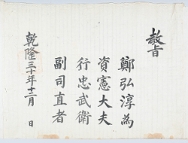 敎旨
鄭弘淳為
資憲大夫
行忠武衛
副司直者
乾隆三十年十二月　日